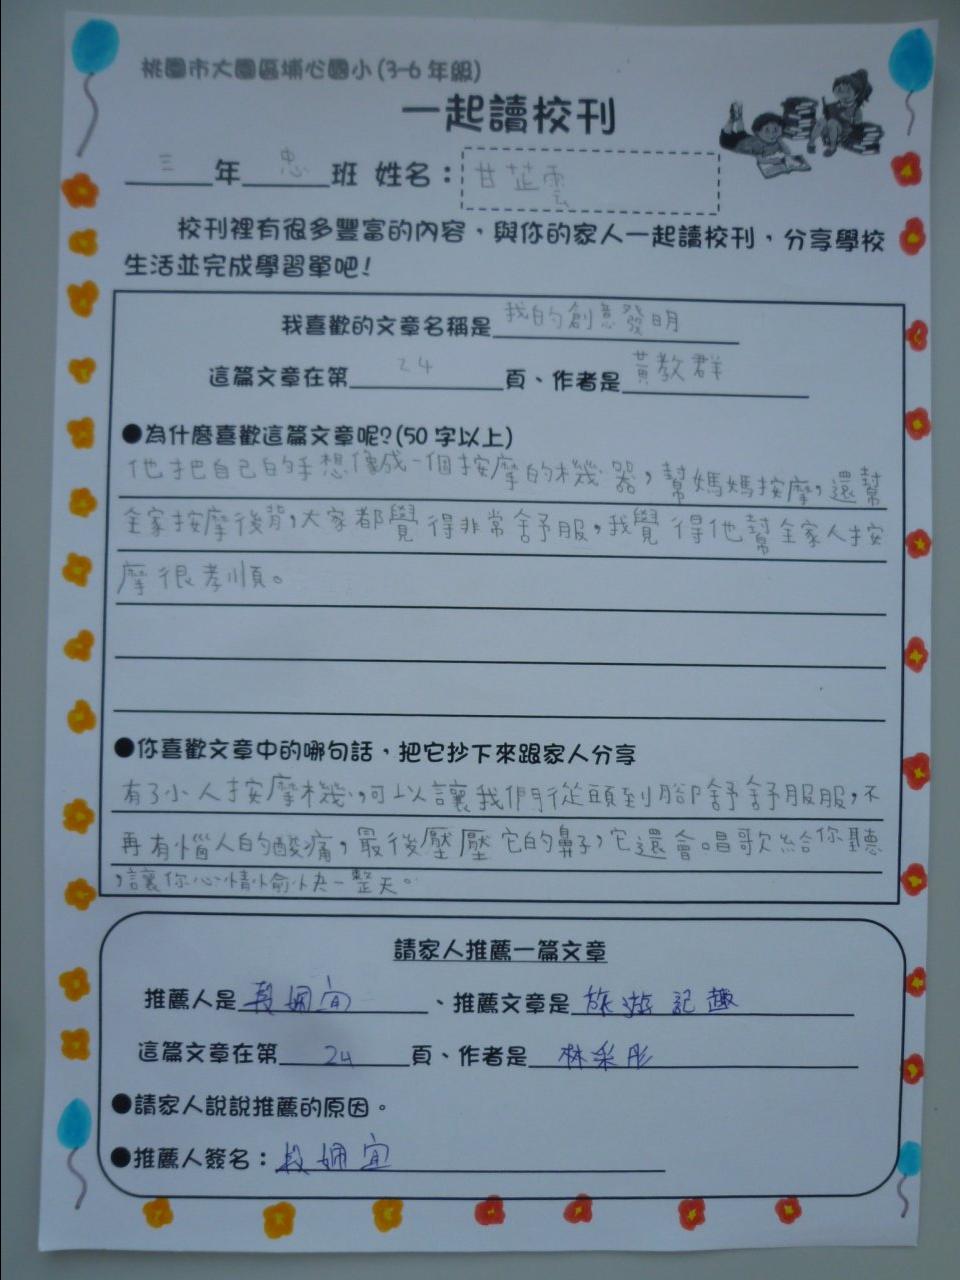 桃園市大園區埔心國小(3-6年級)
一起讀校刊
三年忠班 姓名：甘芷雲
校刊裡有很多豐富的內容，與你的家人一起讀校刊，分享學校
生活並完成學習單吧！
我喜歡的文章名稱是我的創意發明
這篇文章在第24頁、作者是黃教群
●為什麼喜歡這篇文章呢?(50字以上)
他把自己的手想像成一個按摩的機器，幫媽媽按摩，還幫
全家按摩後背，大家都覺得非常舒服，我覺得他幫全家人按
摩很孝順。
●你喜歡文章中的哪句話，把它抄下來跟家人分享
有了小人按摩機，可以讓我們從頭到腳舒舒服服，不
再有惱人的酸痛，最後壓壓它的鼻子，它還會唱歌給你聽
，讓你心情愉快一整天。
請家人推薦一篇文章
推薦人是段姵宜、推薦文章是旅遊記趣
這篇文章在第24頁、作者是林采彤
●請家人說說推薦的原因。
●推薦人簽名：段姵宜